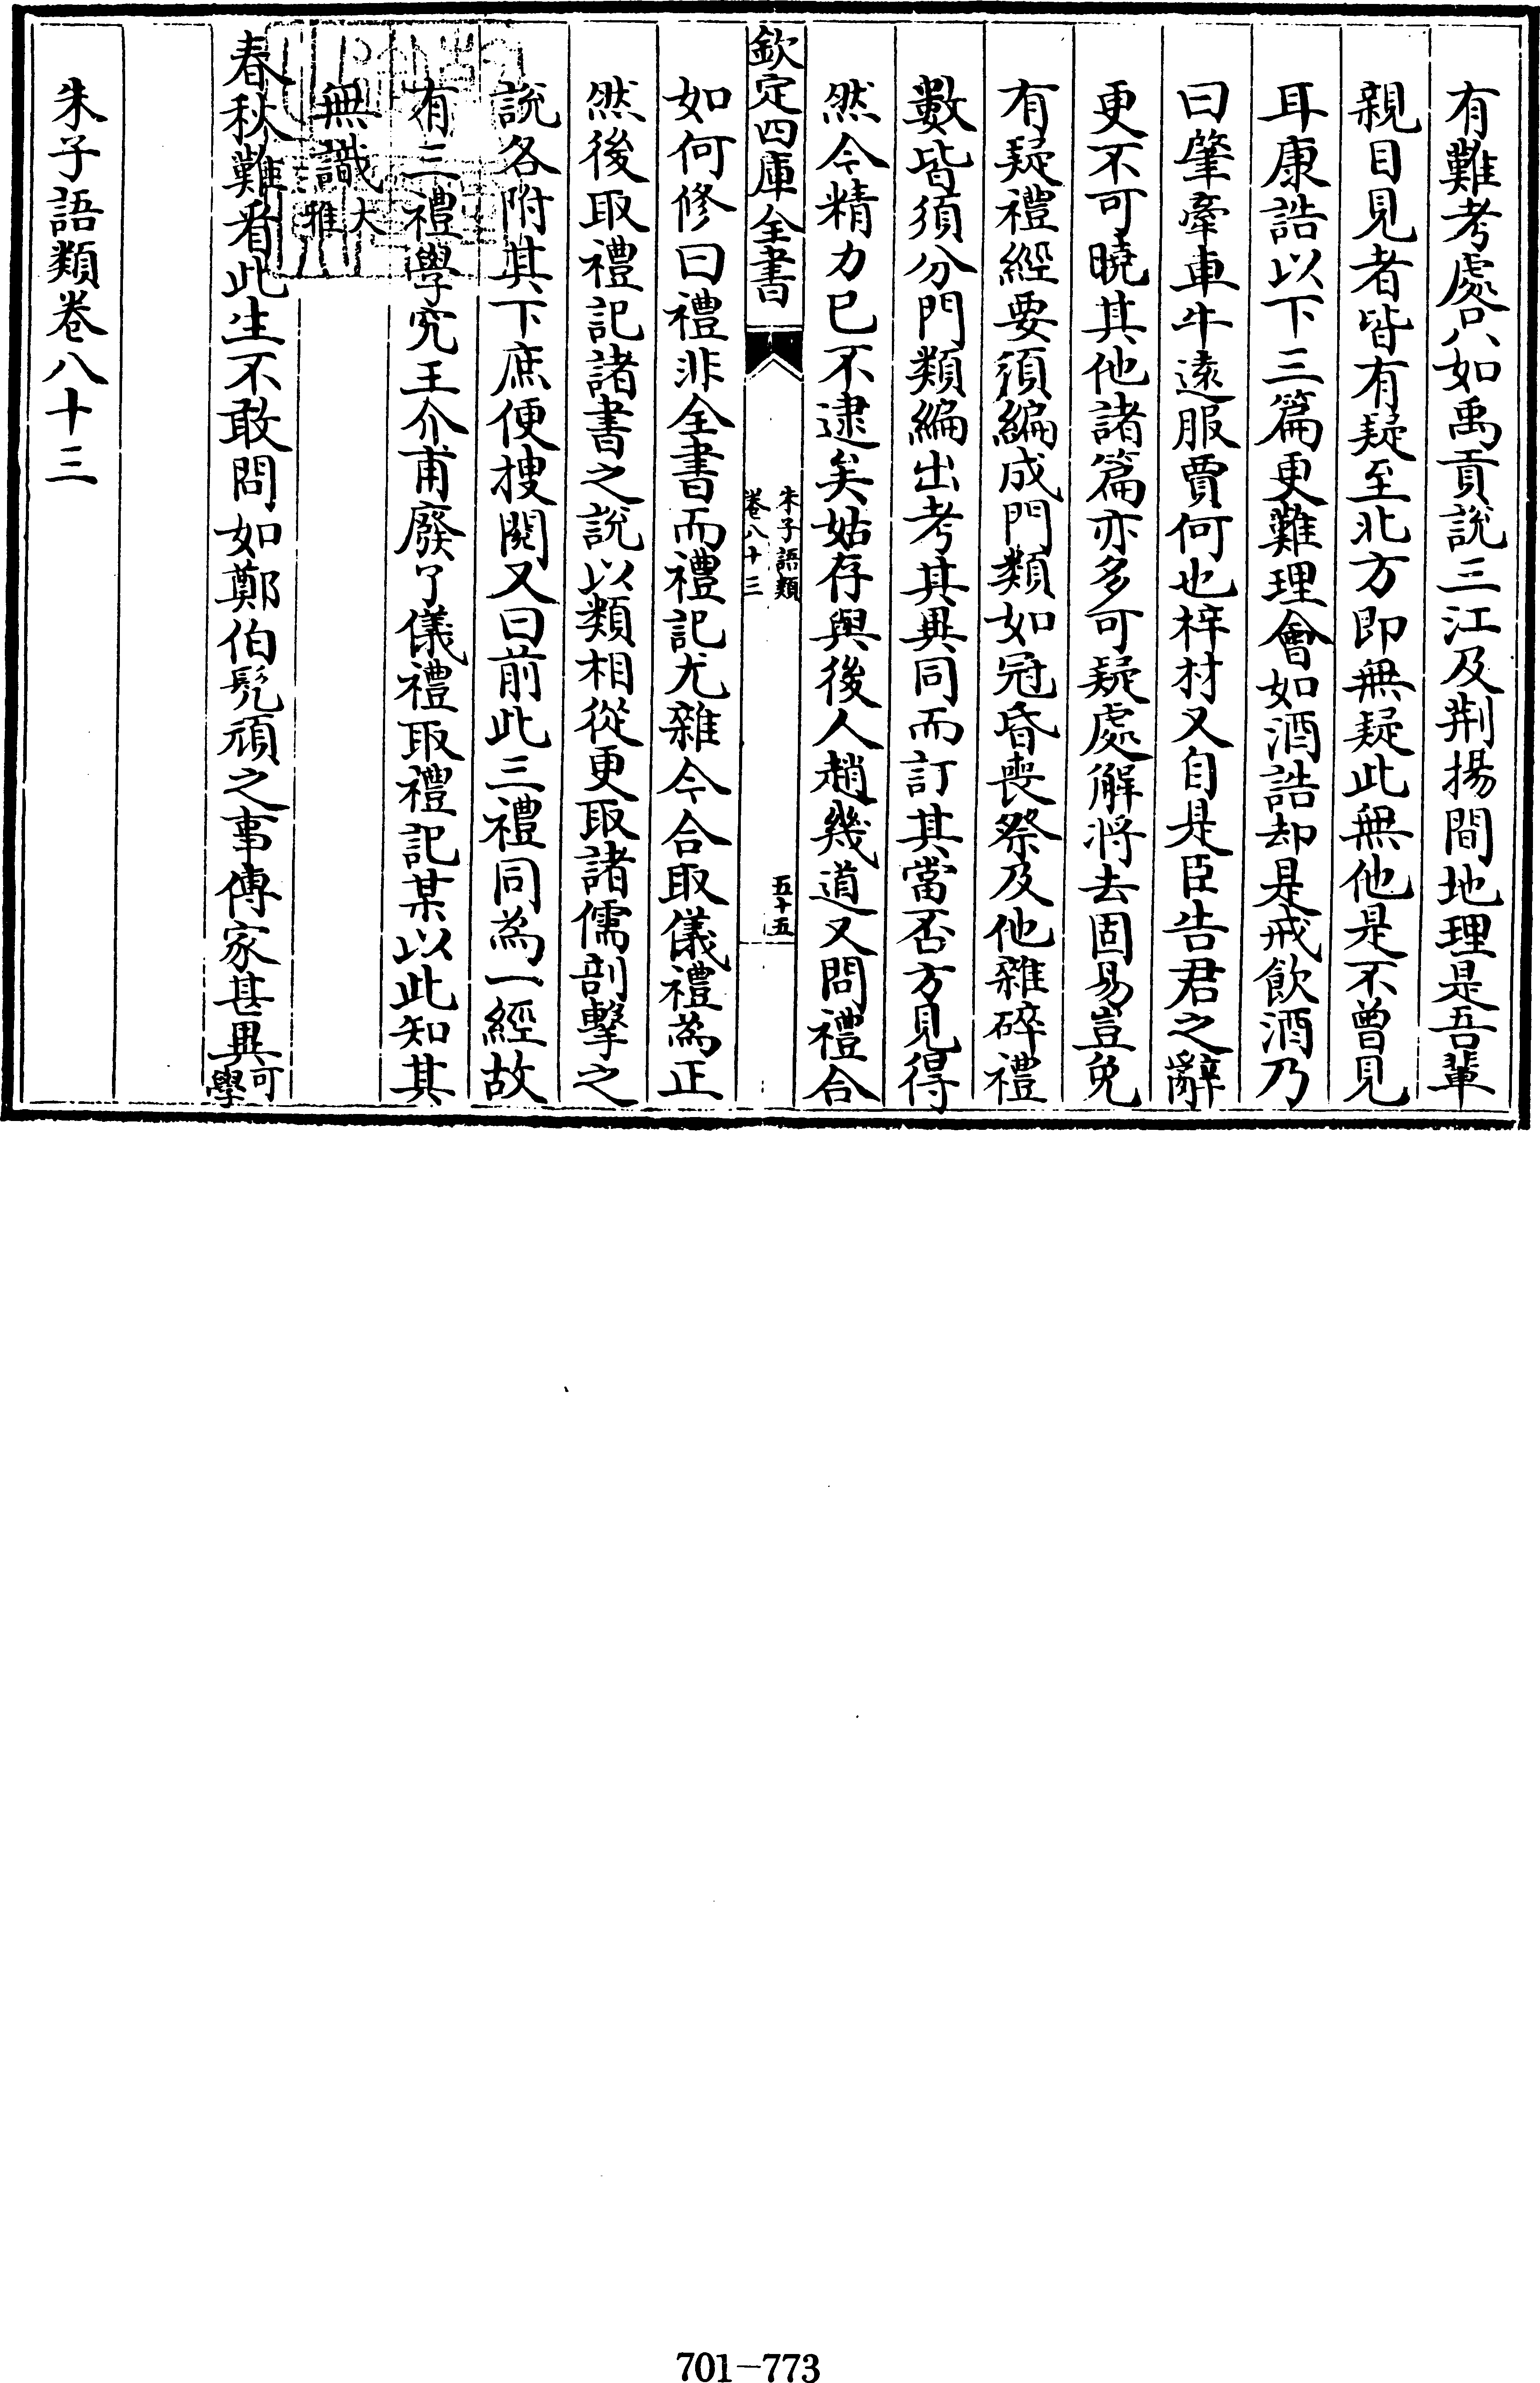 有難考處只如禹貢説三江及荆揚間地理是吾輩
親目見者皆有疑至北方即無疑此無他是不曾見
耳康誥以下三篇更難理會如酒誥却是戒飲酒乃
曰肇牽車牛遠服賈何也梓材又自是臣告君之辭
更不可曉其他諸篇亦多可疑處解將去固易豈免
有疑禮經要須編成門類如冠昏喪祭及他雜碎禮
數皆須分門類編出考其異同而訂其當否方見得
然今精力已不逮矣姑存與後人趙幾道又問禮合
欽定四庫全書
朱子語類
卷八十三
五十五
如何修曰禮非全書而禮記尤雜今合取儀禮為正
然後取禮記諸書之説以類相從更取諸儒剖擊之
説各附其下庶便搜閲又曰前此三禮同為一經故
有三禮學究王介甫廢了儀禮取禮記某以此知其
無識大雅
春秋難看此生不敢問如鄭伯髠頑之事傳家甚異可學
朱子語類卷八十三
701-773